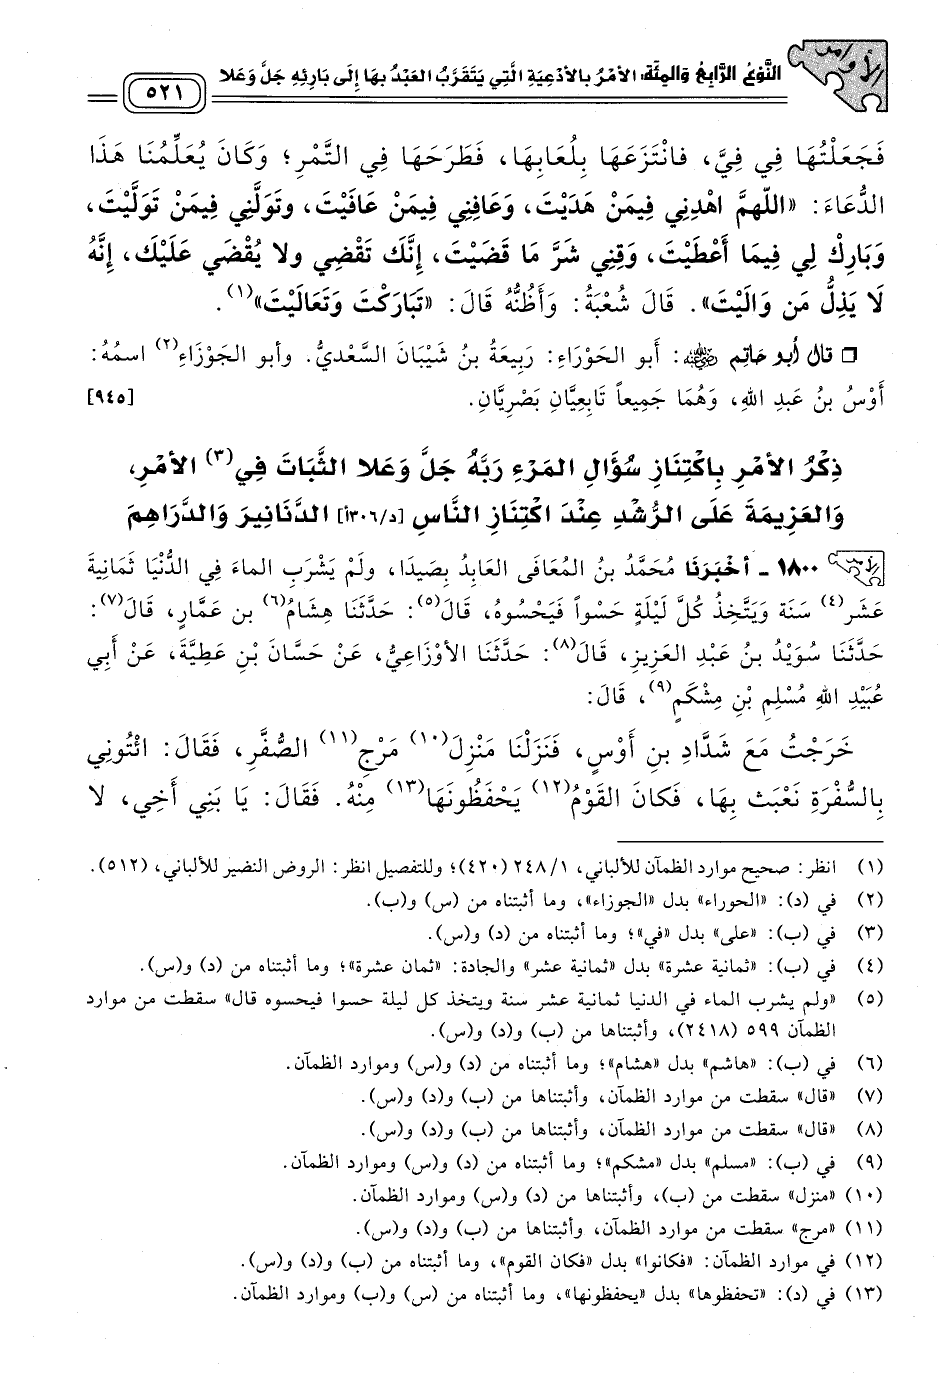 الأوامر
النَّوْعُ الرَّابِعُ وَالمِئَة: الأَمْرُ بِالأَدْعِيَةِ الَّتِي يَتَقَرَّبُ العَبْدُ بِهَا إِلَى بَارِئِهِ جَلَّ وَعَلا
٥٢١
فَجَعَلْتُهَا فِي فِيَّ، فَانْتَزَعَهَا بِلُعَابِهَا، فَطَرَحَهَا فِي التَّمْرِ؛ وَكَانَ يُعَلِّمُنَا هَذَا
الدُّعَاءَ: «اللَّهمَّ اهْدِنِي فِيمَنْ هَدَيْتَ، وَعَافِنِي فِيمَنْ عَافَيْتَ، وتَوَلَّنِي فِيمَنْ تَوَلَّيْتَ،
وَبَارِكْ لِي فِيمَا أَعْطَيْتَ، وَقِنِي شَرَّ مَا قَضَيْتَ، إِنَّكَ تَقْضِي ولا يُقْضَى عَلَيْكَ، إِنَّهُ
لَا يَذِلُّ مَن وَالَيْتَ». قَالَ شُعْبَةُ: وَأَظُنُّهُ قَالَ: «تَبَارَكْتَ وَتَعَالَيْتَ»(١).
❒ قال أبو حاتم رضي الله عنه: أَبو الحَوْرَاءِ: رَبِيعَةُ بنُ شَيْبَانَ السَّعْدِيُّ. وأبو الجَوْزَاءِ(٢) اسمُهُ:
أَوْسُ بنُ عَبدِ اللهِ، وَهُمَا جَمِيعاً تَابِعِيَّانِ بَصْرِيَّانِ. [٩٤٥]
ذِكْرُ الأَمْرِ بِاكْتِنَازِ سُؤَالِ المَرْءِ رَبَّهُ جَلَّ وَعَلا الثَّبَاتَ فِي(٣) الأَمْرِ،
وَالعَزِيمَةَ عَلَى الرُّشْدِ عِنْدَ اكْتِنَازِ النَّاسِ [د/٣٠٦أ] الدَّنَانِيرَ وَالدَّرَاهِمَ
١٨٠٠ - أَخْبَرَنَا مُحَمَّدُ بنُ المُعَافَى العَابِدُ بِصَيدَا، ولَمْ يَشْرَبِ الماءَ فِي الدُّنْيَا ثَمَانِيَةَ
عَشَر(٤) سَنَة وَيَتَّخِذُ كُلَّ لَيْلَةٍ حَسْواً فَيَحْسُوهُ، قَالَ(٥): حَدَّثَنَا هِشَامُ(٦) بن عَمَّارٍ، قَالَ(٧):
حَدَّثَنَا سُوَيْدُ بنُ عَبْدِ العَزِيزِ، قَالَ(٨): حَدَّثَنَا الأَوْزَاعِيُّ، عَنْ حَسَّانَ بْنِ عَطِيَّةَ، عَنْ أَبِي
عُبَيْدِ اللهِ مُسْلِمِ بْنِ مِشْكَمٍ(٩)، قَالَ:
خَرَجْتُ مَعَ شَدَّادِ بنِ أَوْسٍ، فَنَزَلْنَا مَنْزِلَ(١٠) مَرْجِ(١١) الصُّفَّرِ، فَقَالَ: ائْتُونِي
بِالسُّفْرَةِ نَعْبَث بِهَا، فَكَانَ القَوْمُ(١٢) يَحْفَظُونَهَا(١٣) مِنْهُ. فَقَالَ: يَا بَنِي أَخِي، لا
(١) انظر: صحيح موارد الظمآن للألباني، ٢٤٨/١ (٤٢٠)؛ وللتفصيل انظر: الروض النضير للألباني، (٥١٢).
(٢) في (د): «الحوراء» بدل «الجوزاء»، وما أثبتناه من (س) و(ب).
(٣) في (ب): «على» بدل «في»؛ وما أثبتناه من (د) و(س).
(٤) في (ب): «ثمانية عشرة» بدل «ثمانية عشر» والجادة: «ثمان عشرة»؛ وما أثبتناه من (د) و(س).
(٥) «ولم يشرب الماء في الدنيا ثمانية عشر سنة ويتخذ كل ليلة حسوا فيحسوه قال» سقطت من موارد
الظمآن ٥٩٩ (٢٤١٨)، وأثبتناها من (ب) و(د) و(س).
(٦) في (ب): «هاشم» بدل «هشام»؛ وما أثبتناه من (د) و(س) وموارد الظمآن.
(٧) «قال» سقطت من موارد الظمآن، وأثبتناها من (ب) و(د) و(س).
(٨) «قال» سقطت من موارد الظمآن، وأثبتناها من (ب) و(د) و(س).
(٩) في (ب): «مسلم» بدل «مشكم»؛ وما أثبتناه من (د) و(س) وموارد الظمآن.
(١٠) «منزل» سقطت من (ب)، وأثبتناها من (د) و(س) وموارد الظمآن.
(١١) «مرج» سقطت من موارد الظمآن، وأثبتناها من (ب) و(د) و(س).
(١٢) في موارد الظمآن: «فكانوا» بدل «فكان القوم»، وما أثبتناه من (ب) و(د) و(س).
(١٣) في (د): «تحفظوها» بدل «يحفظونها»، وما أثبتناه من (س) و(ب) وموارد الظمآن.